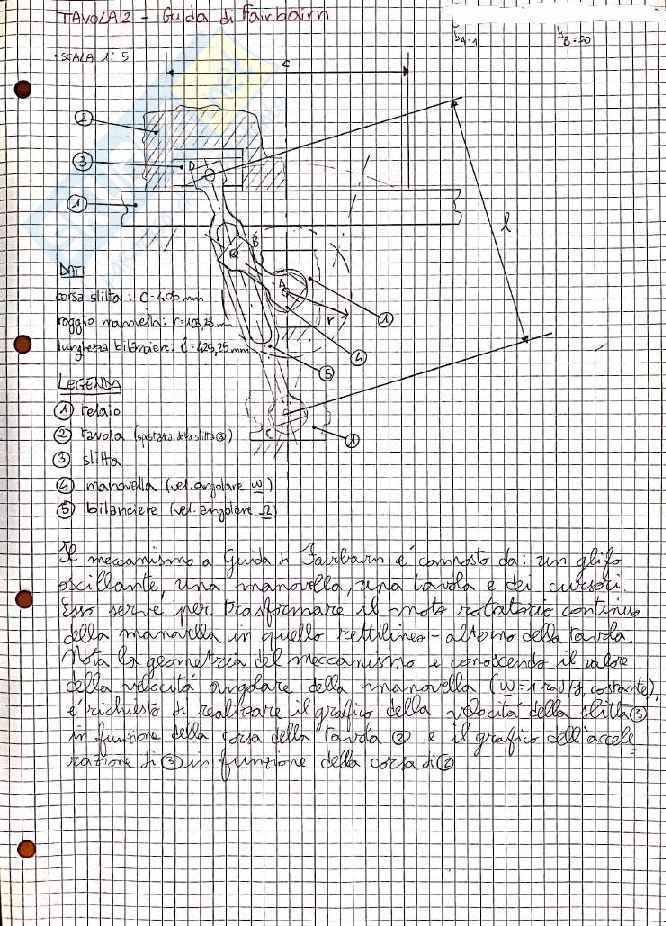 TAVOLA 2 - Guida di Fairbairn
SCALA 1:5
C
2
3
D
1
B
A
r
1
4
5
l
C
1
DATI
corsa slitta: C =
raggio manovella: r =
lunghezza bilanciere: l = 425,25 mm
LEGENDA
1 telaio
2 tavola (spostata dalla slitta 3)
3 slitta
4 manovella (vel. angolare ω)
5 bilanciere (vel. angolare Ω)
Il meccanismo a Guida di Fairbairn è composto da: un glifo
oscillante, una manovella, una tavola e dei cursori.
Esso serve per trasformare il moto rotatorio continuo
della manovella in quello rettilineo-alterno della tavola.
Nota la geometria del meccanismo e conoscendo il valore
della velocità angolare della manovella (ω = 1 rad/s, costante),
è richiesto di realizzare il grafico della velocità della slitta 3
in funzione della corsa della tavola 2 e il grafico dell'accele
razione di 3 in funzione della corsa di 2